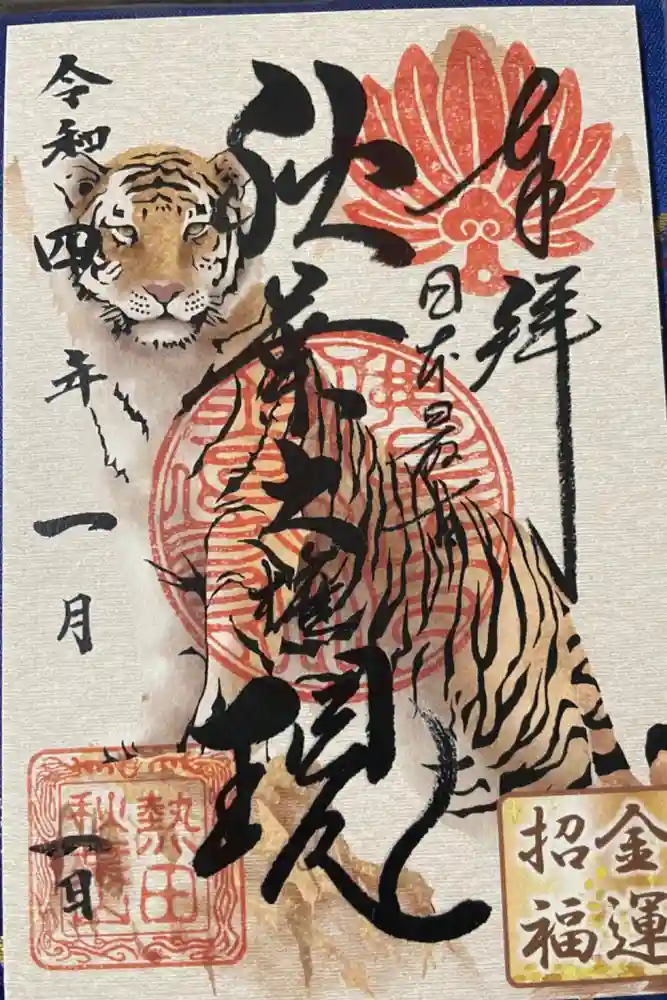 奉拝
日本最古
秋葉大権現
令和四年一月一日
熱田
秋葉山
金運
招福